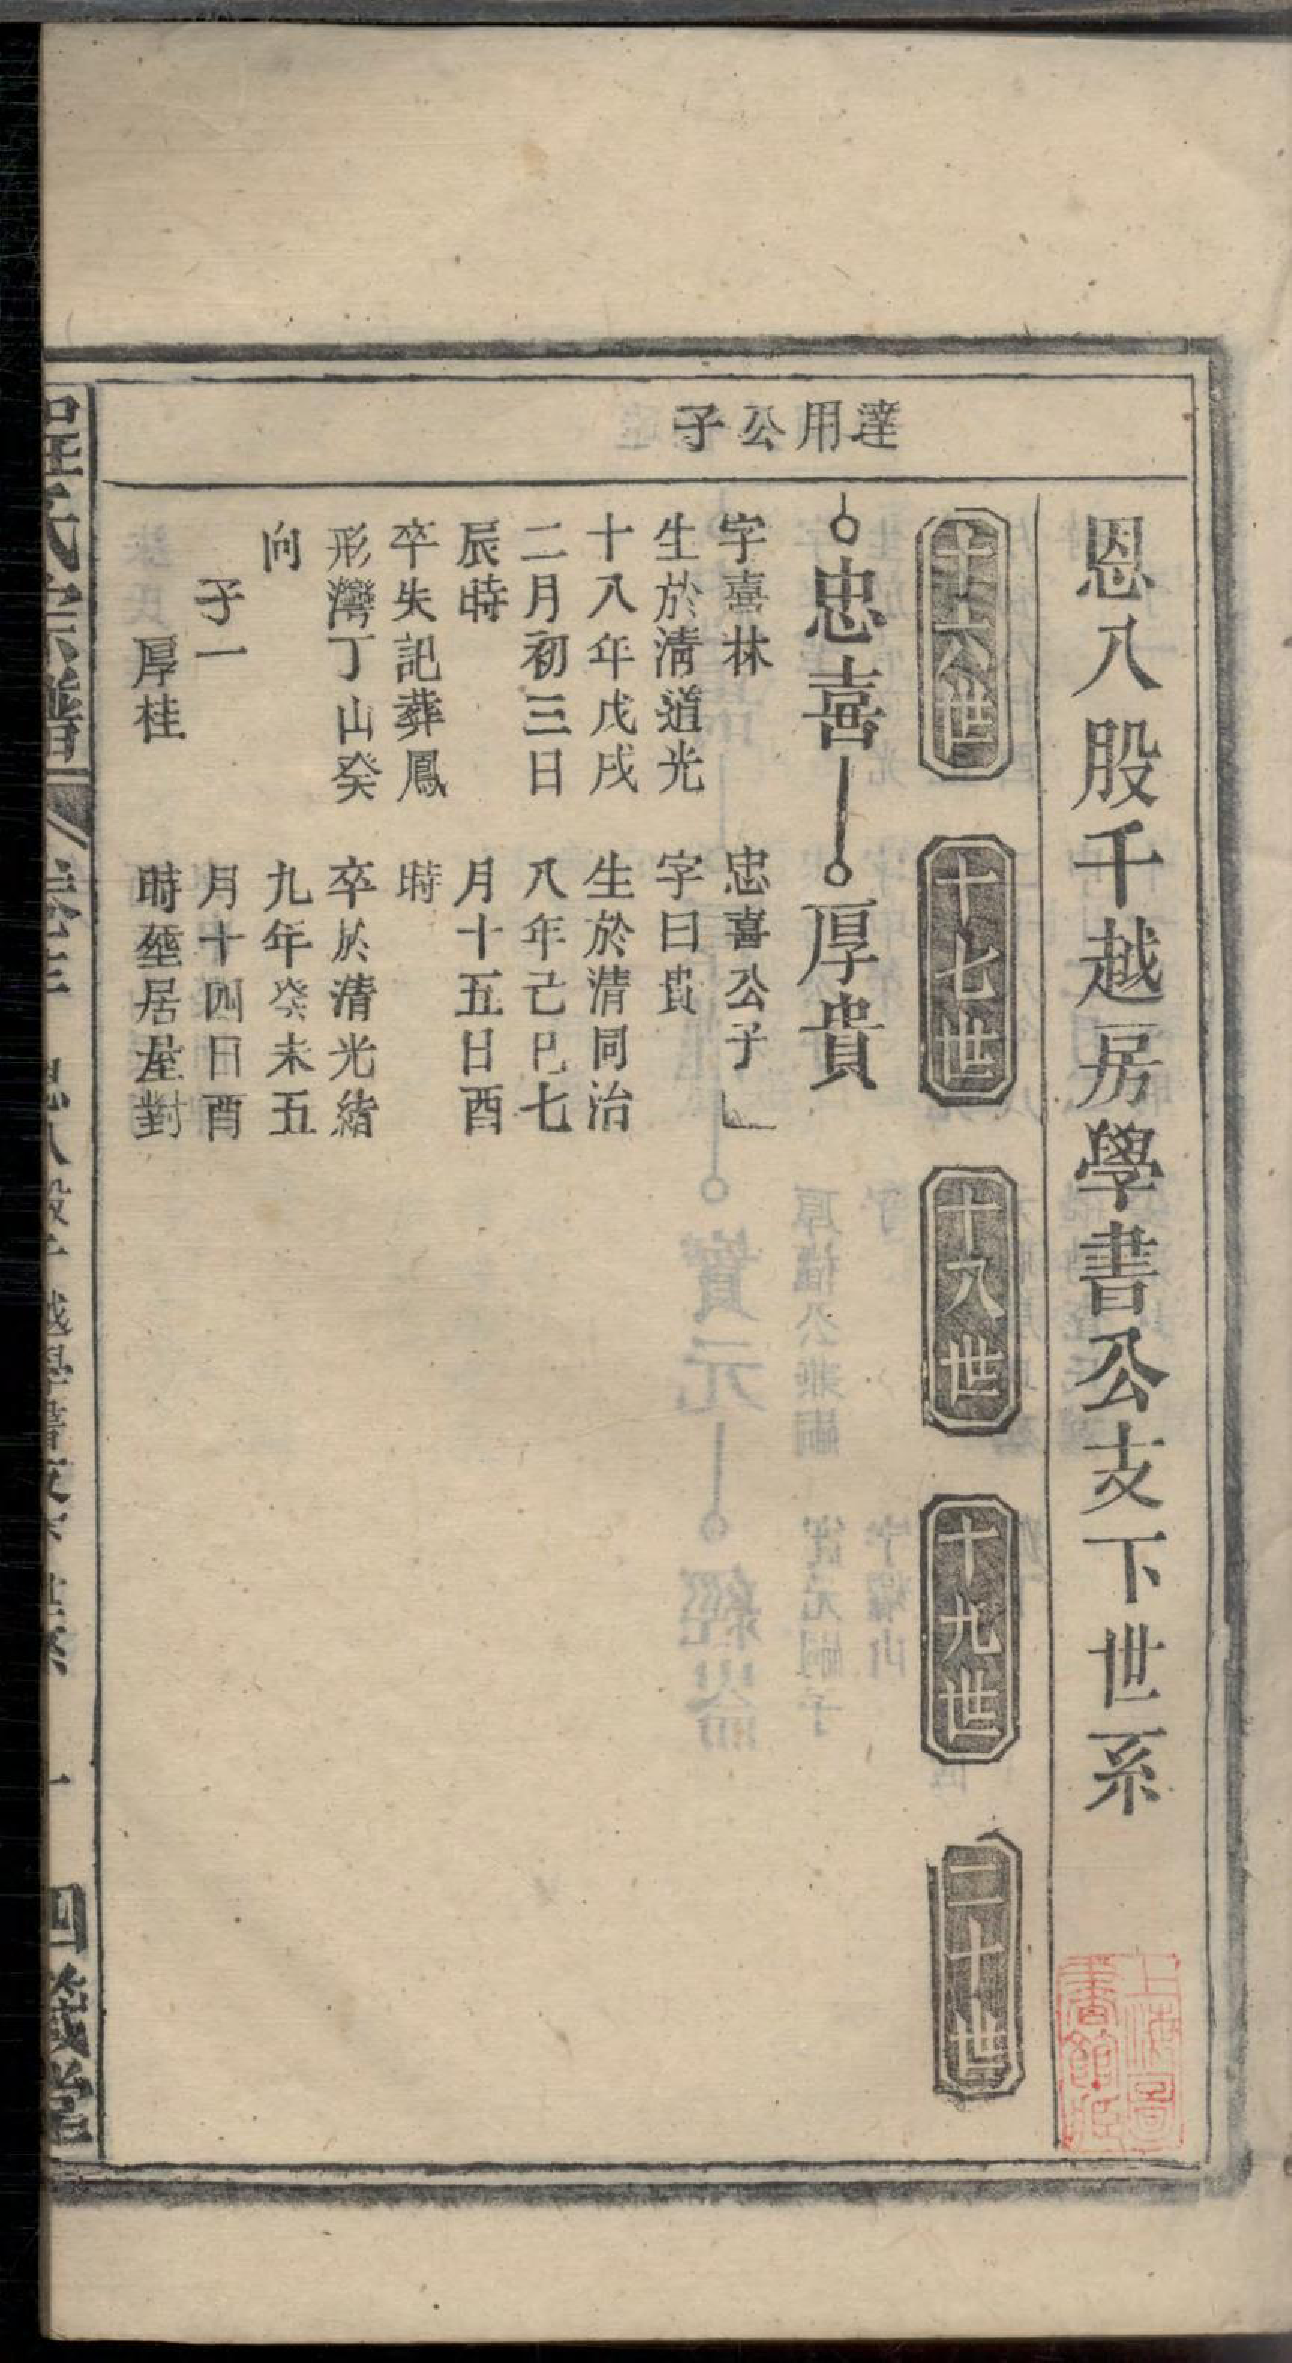 恩八股千越房學書公支下世系
十六世
十七世
十八世
十九世
二十世
達用公子
忠喜
字喜林
生於清道光
十八年戊戌
二月初三日
辰時
卒失記葬鳳
形灣丁山癸
向
子一
厚桂
厚貴
忠喜公子
字曰貴
生於清同治
八年己巳七
月十五日酉
時
卒於清光緒
九年癸未五
月十四日酉
時塟居屋對
上海圖
書館藏